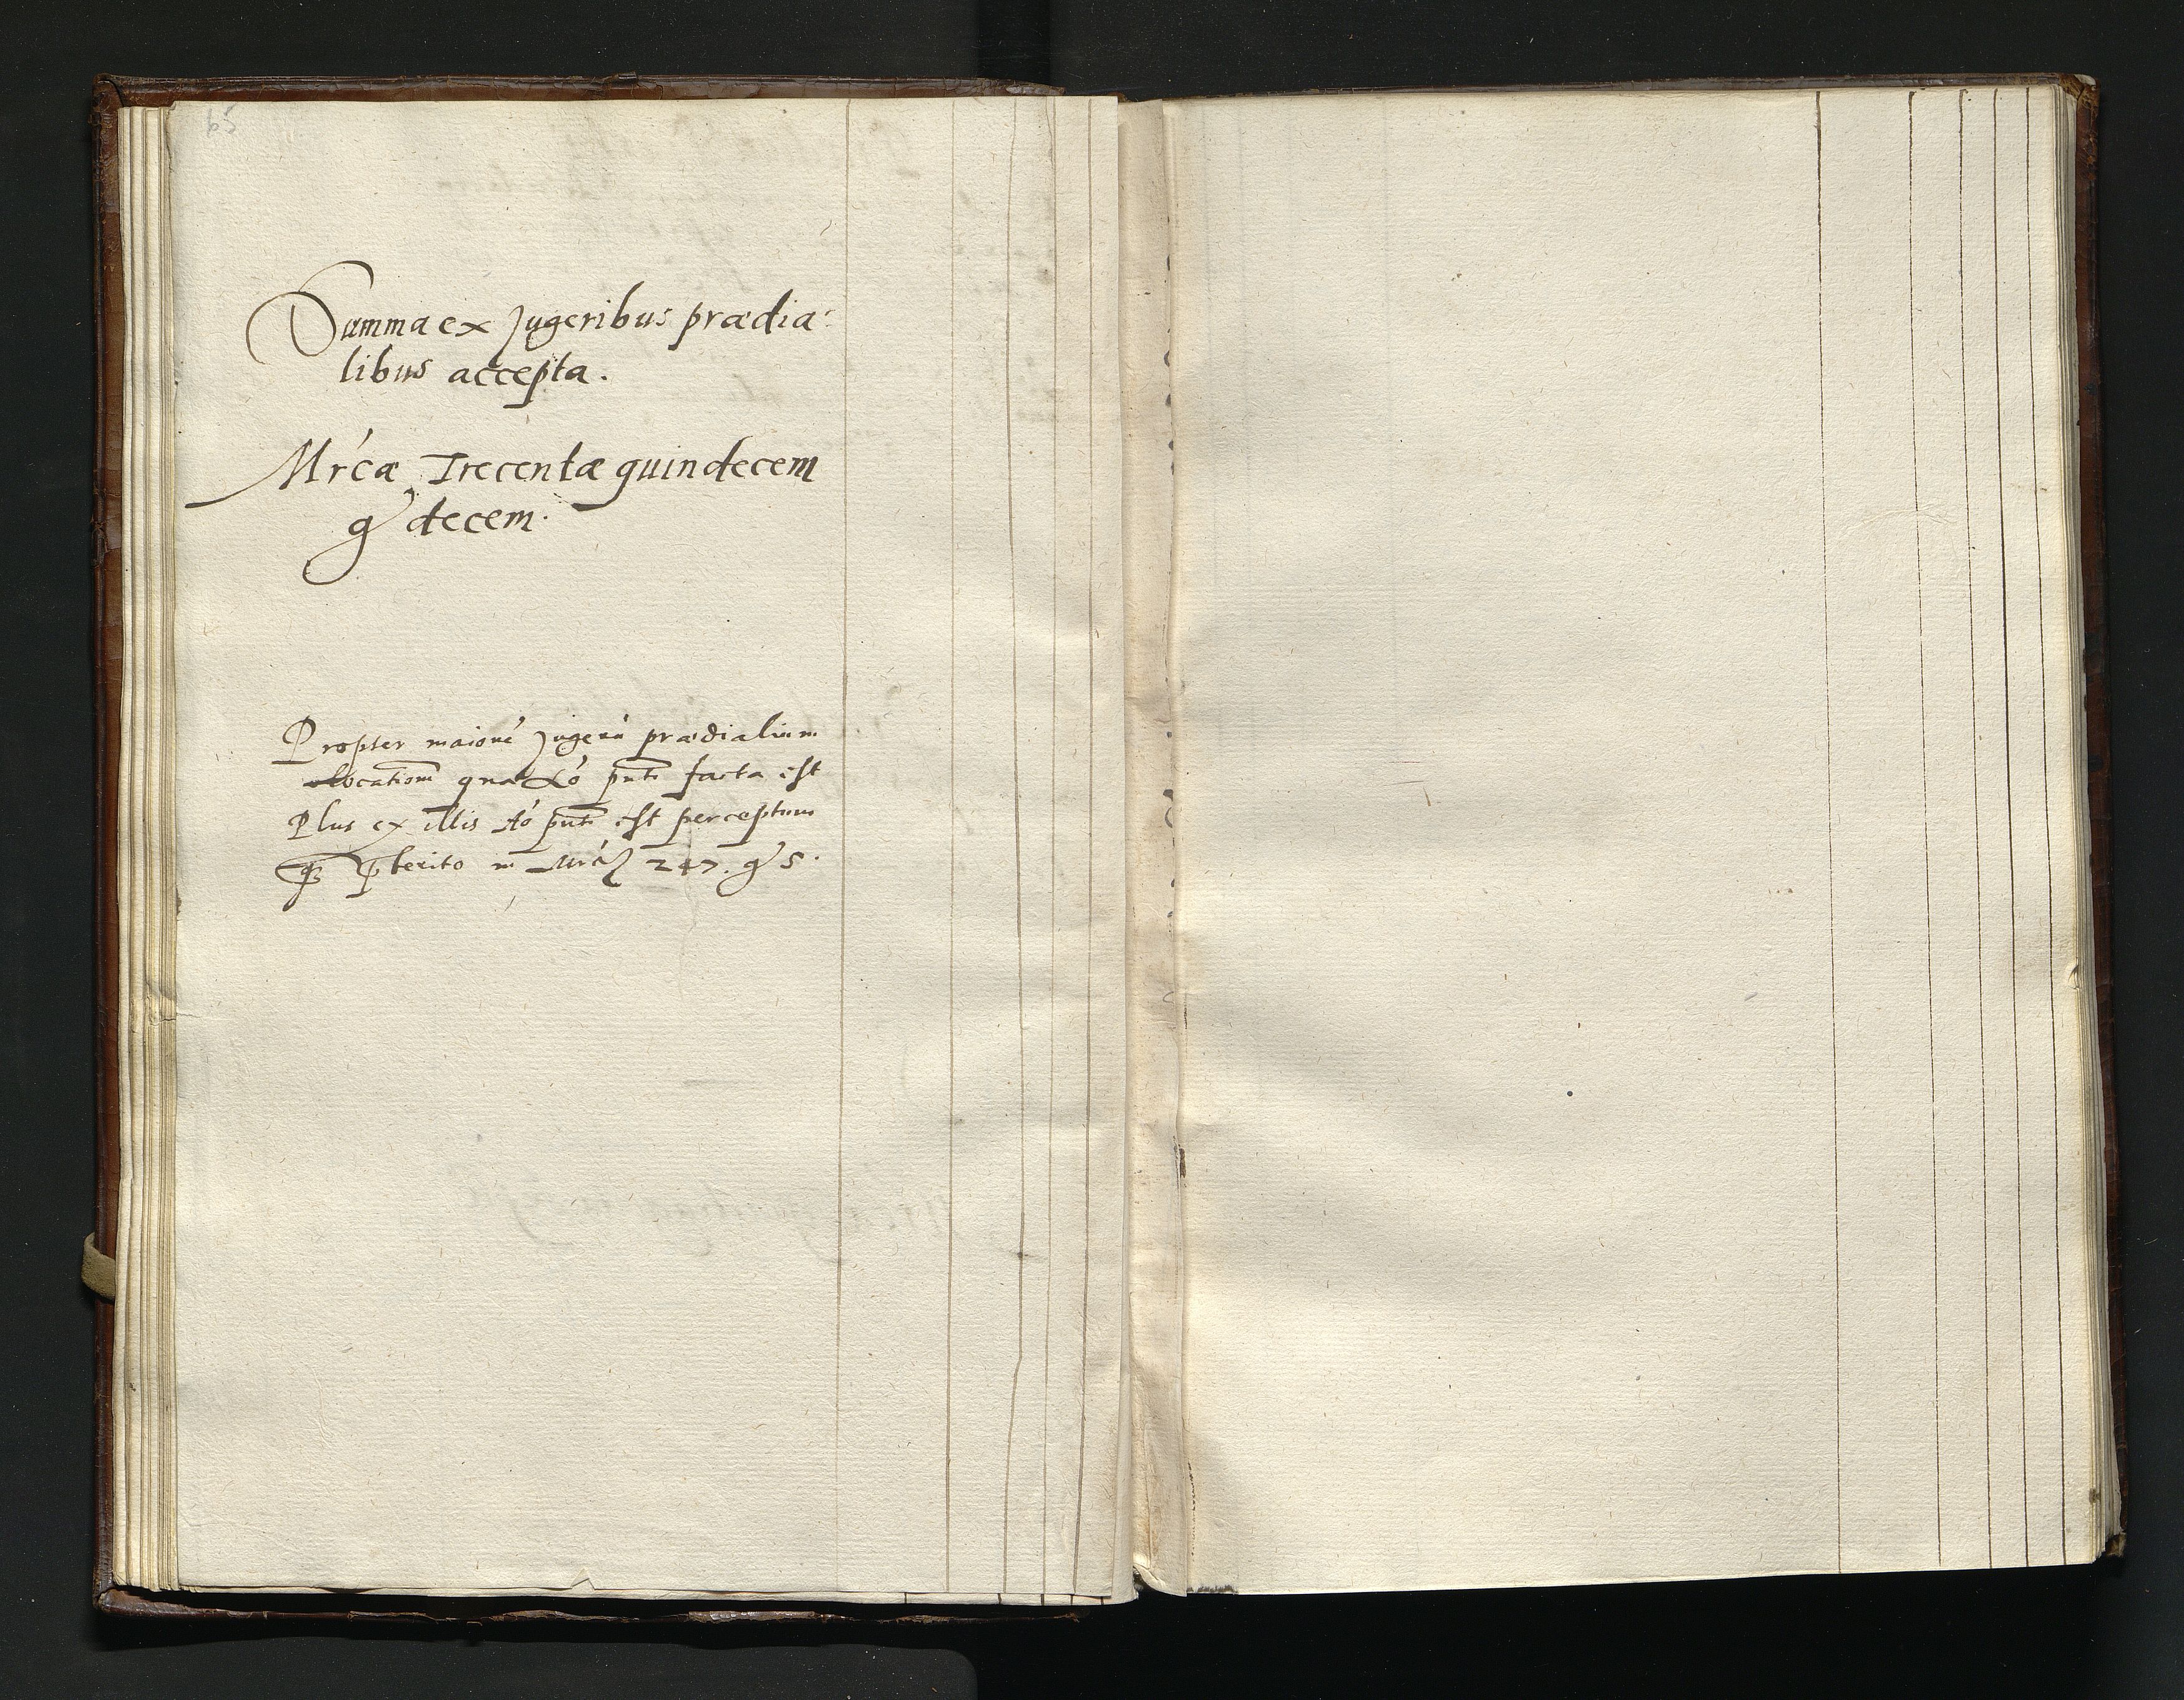 65
Summa ex Jugeribus prædia:
libus accepta.
Mrcæ Trecentæ quindecem
gʼ decem.
Propter maiorē Jugerū prædialium
locationē quæ āo pn̄ti facta est
Plus ex illis Ao pn̄ti est perceptum
qʒ p̄terito in Mrć 247. gʼ 5.